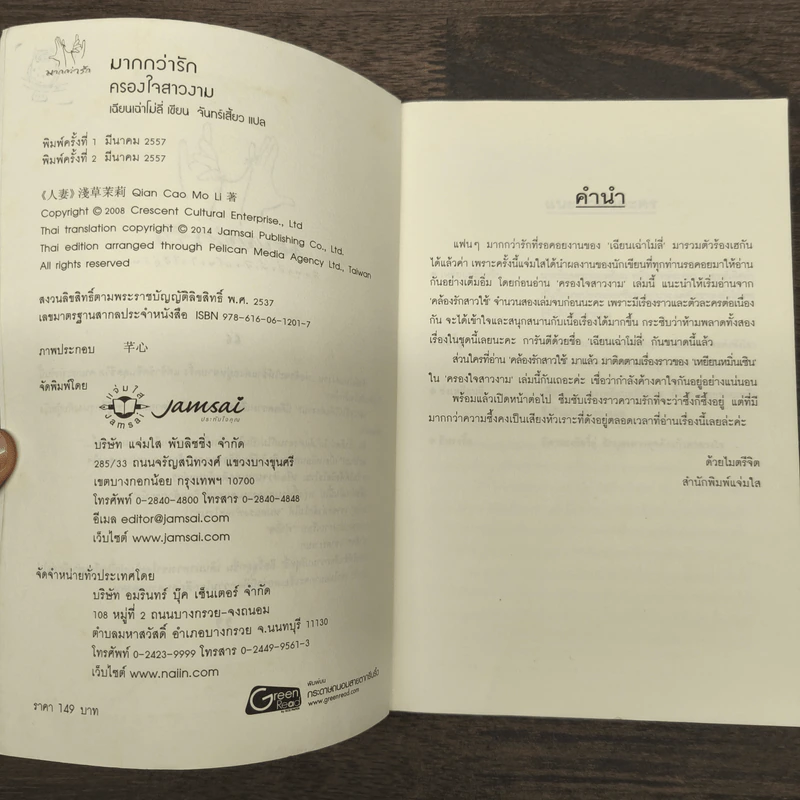 มากกว่ารัก
มากกว่ารัก
ครองใจสาวงาม
เฉียนเฉ่าโม่ลี่ เขียน จันทร์เสี้ยว แปล
พิมพ์ครั้งที่ 1 มีนาคม 2557
พิมพ์ครั้งที่ 2 มีนาคม 2557
《人妻》淺草茉莉 Qian Cao Mo Li 著
Copyright © 2008 Crescent Cultural Enterprise., Ltd
Thai translation copyright © 2014 Jamsai Publishing Co., Ltd.
Thai edition arranged through Pelican Media Agency Ltd., Taiwan
All rights reserved
สงวนลิขสิทธิ์ตามพระราชบัญญัติลิขสิทธิ์ พ.ศ. 2537
เลขมาตรฐานสากลประจำหนังสือ ISBN 978-616-06-1201-7
ภาพประกอบ 芊心
จัดพิมพ์โดย
แจ่มใส
JAMSAI
Jamsai
ประทับใจคุณ
บริษัท แจ่มใส พับลิชชิ่ง จำกัด
285/33 ถนนจรัญสนิทวงศ์ แขวงบางขุนศรี
เขตบางกอกน้อย กรุงเทพฯ 10700
โทรศัพท์ 0-2840-4800 โทรสาร 0-2840-4848
อีเมล editor@jamsai.com
เว็บไซต์ www.jamsai.com
จัดจำหน่ายทั่วประเทศโดย
บริษัท อมรินทร์ บุ๊ค เซ็นเตอร์ จำกัด
108 หมู่ที่ 2 ถนนบางกรวย-จงถนอม
ตำบลมหาสวัสดิ์ อำเภอบางกรวย จ.นนทบุรี 11130
โทรศัพท์ 0-2423-9999 โทรสาร 0-2449-9561-3
เว็บไซต์ www.naiin.com
ราคา 149 บาท
Green Read
พิมพ์บน
กระดาษถนอมสายตากรีนรี้ด
www.greenread.com
คำนำ
แฟนๆ มากกว่ารักที่รอคอยงานของ 'เฉียนเฉ่าโม่ลี่' มารวมตัวร้องเฮกัน
ได้แล้วค่า เพราะครั้งนี้แจ่มใสได้นำผลงานของนักเขียนที่ทุกท่านรอคอยมาให้อ่าน
กันอย่างเต็มอิ่ม โดยก่อนอ่าน 'ครองใจสาวงาม' เล่มนี้ แนะนำให้เริ่มอ่านจาก
'คล้องรักสาวใช้' จำนวนสองเล่มจบก่อนนะคะ เพราะมีเรื่องราวและตัวละครต่อเนื่อง
กัน จะได้เข้าใจและสนุกสนานกับเนื้อเรื่องได้มากขึ้น กระซิบว่าห้ามพลาดทั้งสอง
เรื่องในชุดนี้เลยนะคะ การันตีด้วยชื่อ 'เฉียนเฉ่าโม่ลี่' กันขนาดนี้แล้ว
ส่วนใครที่อ่าน 'คล้องรักสาวใช้' มาแล้ว มาติดตามเรื่องราวของ 'เหยียนหมิ่นเซิน'
ใน 'ครองใจสาวงาม' เล่มนี้กันเถอะค่ะ เชื่อว่ากำลังค้างคาใจกันอยู่อย่างแน่นอน
พร้อมแล้วเปิดหน้าต่อไป ซึมซับเรื่องราวความรักที่จะว่าซึ้งก็ซึ้งอยู่ แต่ที่มี
มากกว่าความซึ้งคงเป็นเสียงหัวเราะที่ดังอยู่ตลอดเวลาที่อ่านเรื่องนี้เลยล่ะค่ะ
ด้วยไมตรีจิต
สำนักพิมพ์แจ่มใส